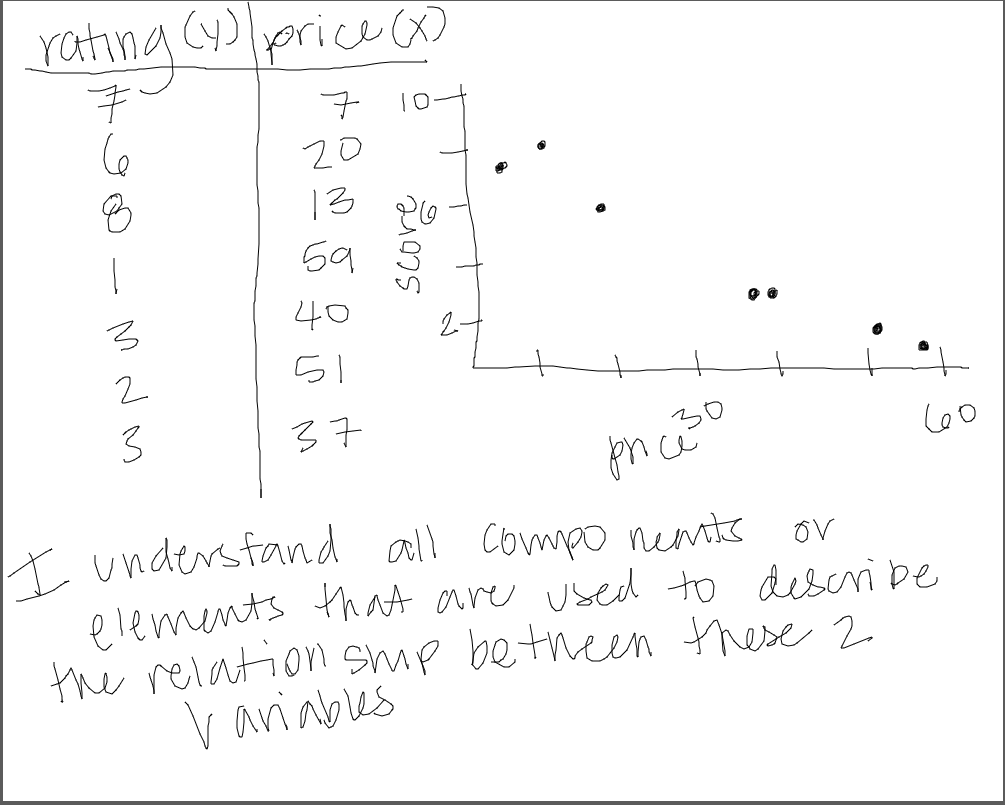 rating (y) price (x)
7 7
6 20
8 13
1 59
3 40
2 51
3 37
10
6
2
score
30
60
price
I understand all components or
elements that are used to describe
the relationship between these 2
variables